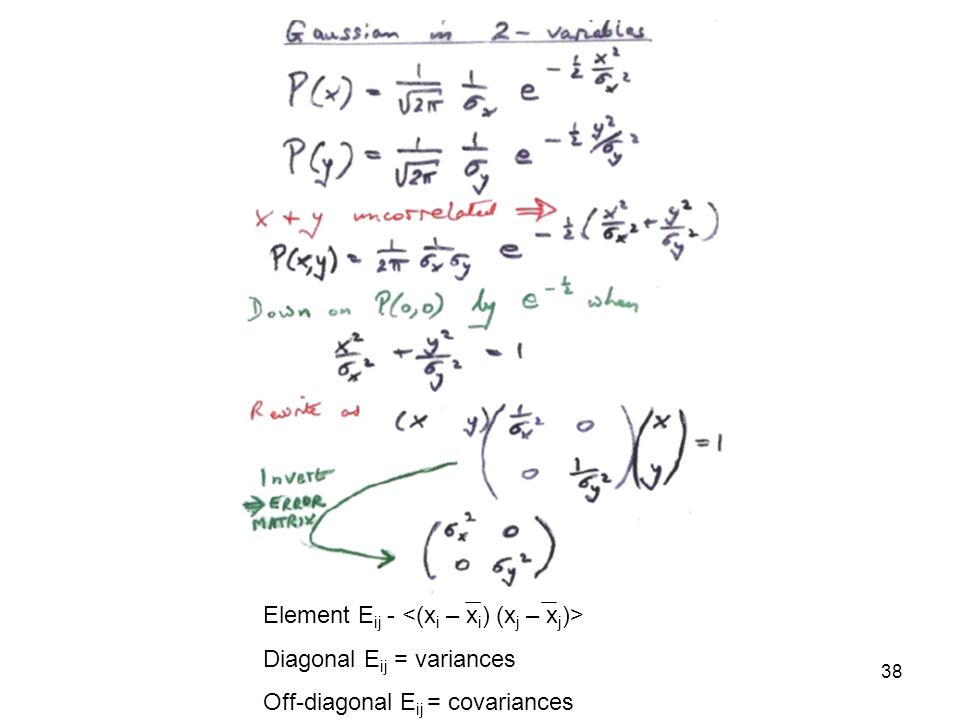 Gaussian in 2-variables
P(x) = 1/√2π 1/σx e^(-½ x²/σx²)
P(y) = 1/√2π 1/σy e^(-½ y²/σy²)
x + y uncorrelated ⇒
P(x,y) = 1/2π 1/σxσy e^(-½(x²/σx² + y²/σy²))
Down on P(0,0) by e^(-½) when
x²/σx² + y²/σy² = 1
Rewrite as (x y) (1/σx² 0
0 1/σy²) (x
y) = 1
Invert
⇒ ERROR
MATRIX
(σx² 0
0 σy²)
Element Eij - <(xi – x̅i) (xj – x̅j)>
Diagonal Eij = variances
Off-diagonal Eij = covariances
38